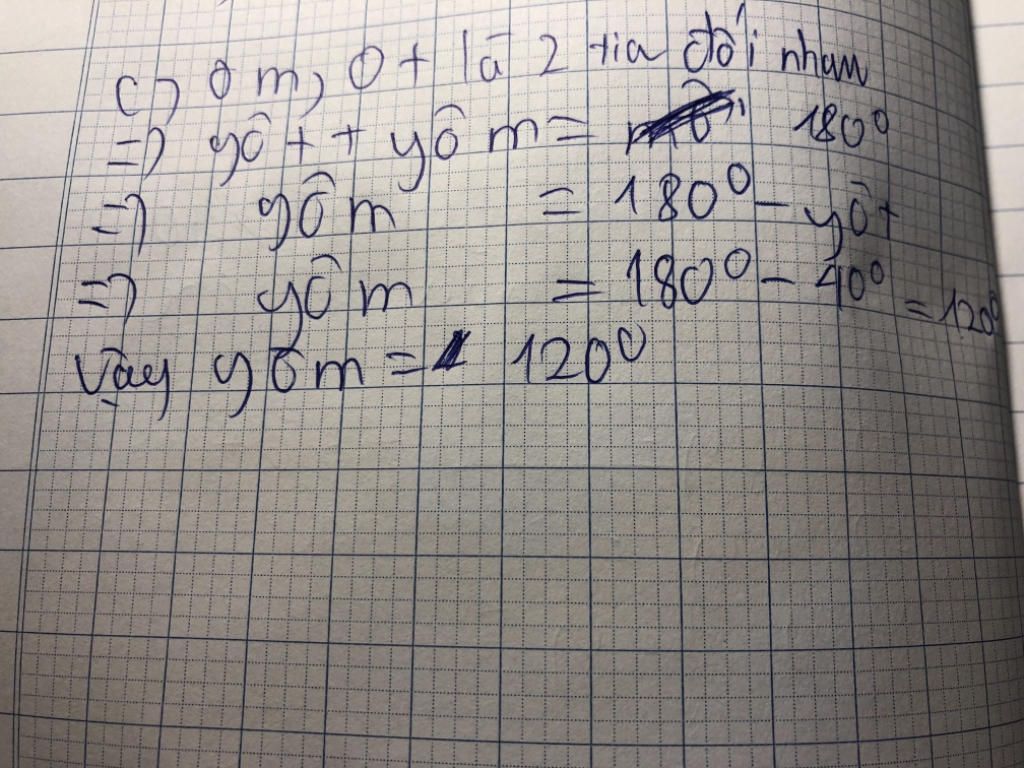 c, Om, Ot là 2 tia đối nhau
=) yÔt + yÔm = 180⁰
=) yÔm = 180⁰ - yÔt
=) yÔm = 180⁰ - 40⁰ = 120⁰
Vậy yÔm = 120⁰